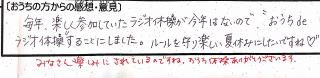 【おうちの方からの感想・意見】
毎年、楽しく参加していたラジオ体操が今年はないので、おうちde
ラジオ体操することにしました。ルールを守り楽しい夏休みにしたいですね♡
みなさん楽しみにされているのですね。おうち体操ありがとうございます。